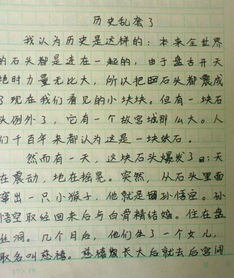 历史乱套了
我认为历史是这样的：本来全世界
的石头都是连在一起的，由于盘古开天
地时力量无比大，所以把石头都震成
了现在我们看见的小块块。但有一块石
头例外了，它有一个故宫城那么大。人
们千百年来都认为这是一块砍石。
然而有一天，这块石头爆发了：天
在震动，地在摇晃。突然，从石头里面
出一只小猴子，他就是孙悟空。孙
悟空取经回来后与白骨精结婚。住在盘
丝洞。几个月后，他们生了一个女儿，
取名叫慈禧。慈禧长大后就去后宫闹